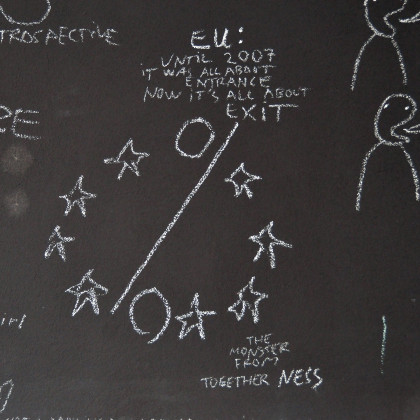 TROSPECTIVE
EU:
UNTIL 2007
IT WAS ALL ABOUT
ENTRANCE
NOW IT'S ALL ABOUT
EXIT
PE
THE
MONSTER
FROM
TOGETHER NESS